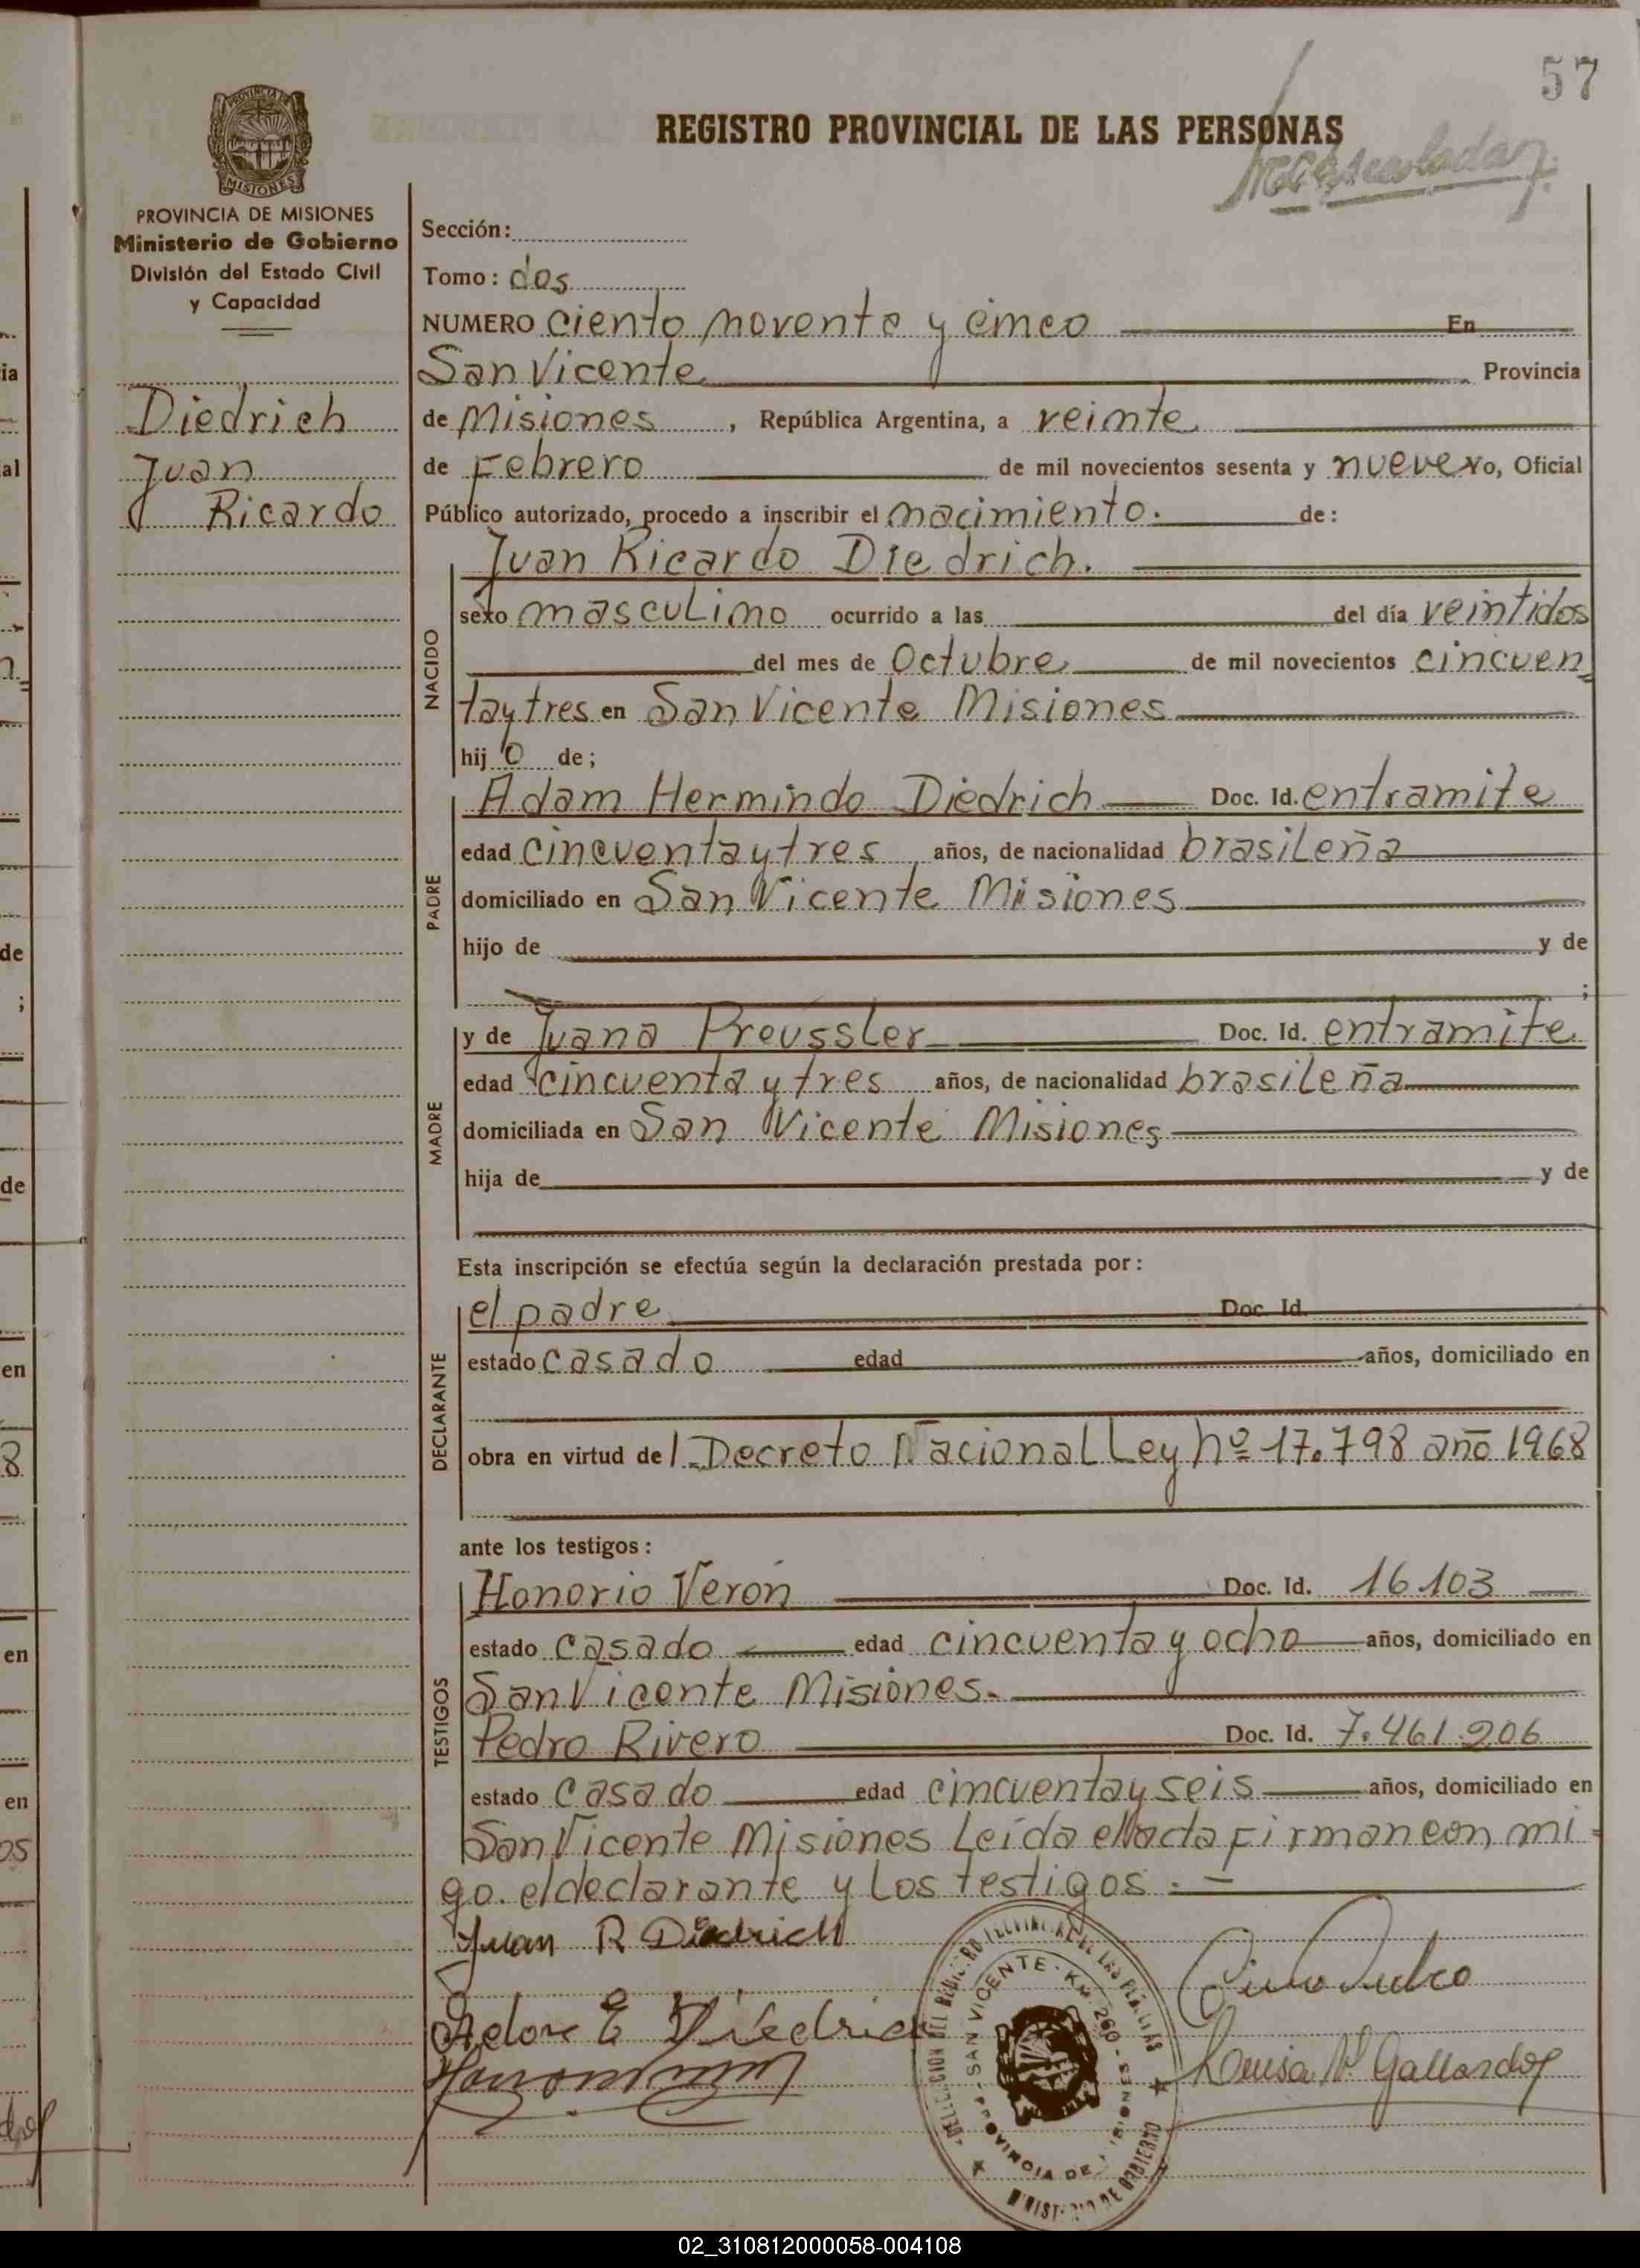 57
REGISTRO PROVINCIAL DE LAS PERSONAS
PROVINCIA DE
MISIONES
PROVINCIA DE MISIONES
Ministerio de Gobierno
División del Estado Civil
y Capacidad
Diedrich
Juan
Ricardo
Sección:
Tomo: dos
NUMERO ciento noventa y cinco En
San Vicente Provincia
de Misiones, República Argentina, a veinte
de Febrero de mil novecientos sesenta y nueve Yo, Oficial
Público autorizado, procedo a inscribir el nacimiento. de:
Juan Ricardo Diedrich.
NACIDO
sexo masculino ocurrido a las del día veintidos
del mes de Octubre de mil novecientos cincuen
tay tres en San Vicente Misiones
hij o de;
PADRE
Adam Hermindo Diedrich Doc. Id. entramite
edad cincuentaytres años, de nacionalidad brasileña
domiciliado en San Vicente Misiones
hijo de y de
;
MADRE
y de Juana Preussler Doc. Id. entramite
edad cincuenta y tres años, de nacionalidad brasileña
domiciliada en San Vicente Misiones
hija de y de
Esta inscripción se efectúa según la declaración prestada por:
DECLARANTE
el padre Doc. Id.
estado casado edad años, domiciliado en
obra en virtud del Decreto Nacional Ley Nº 17.798 año 1968
ante los testigos:
TESTIGOS
Honorio Verón Doc. Id. 16.103
estado casado edad cincuenta y ocho años, domiciliado en
San Vicente Misiones.
Pedro Rivero Doc. Id. 7.461.206
estado casado edad cincuentayseis años, domiciliado en
San Vicente Misiones Leída el Acta Firman con mi
go. el declarante y los testigos.
Juan R Diedrich
Adon E Diedrich
Luisa N. Gallardo
SAN VICENTE - KM. 260 -
PROVINCIA DE MISIONES
MINISTERIO DE GOBIERNO
02_310812000058-004108